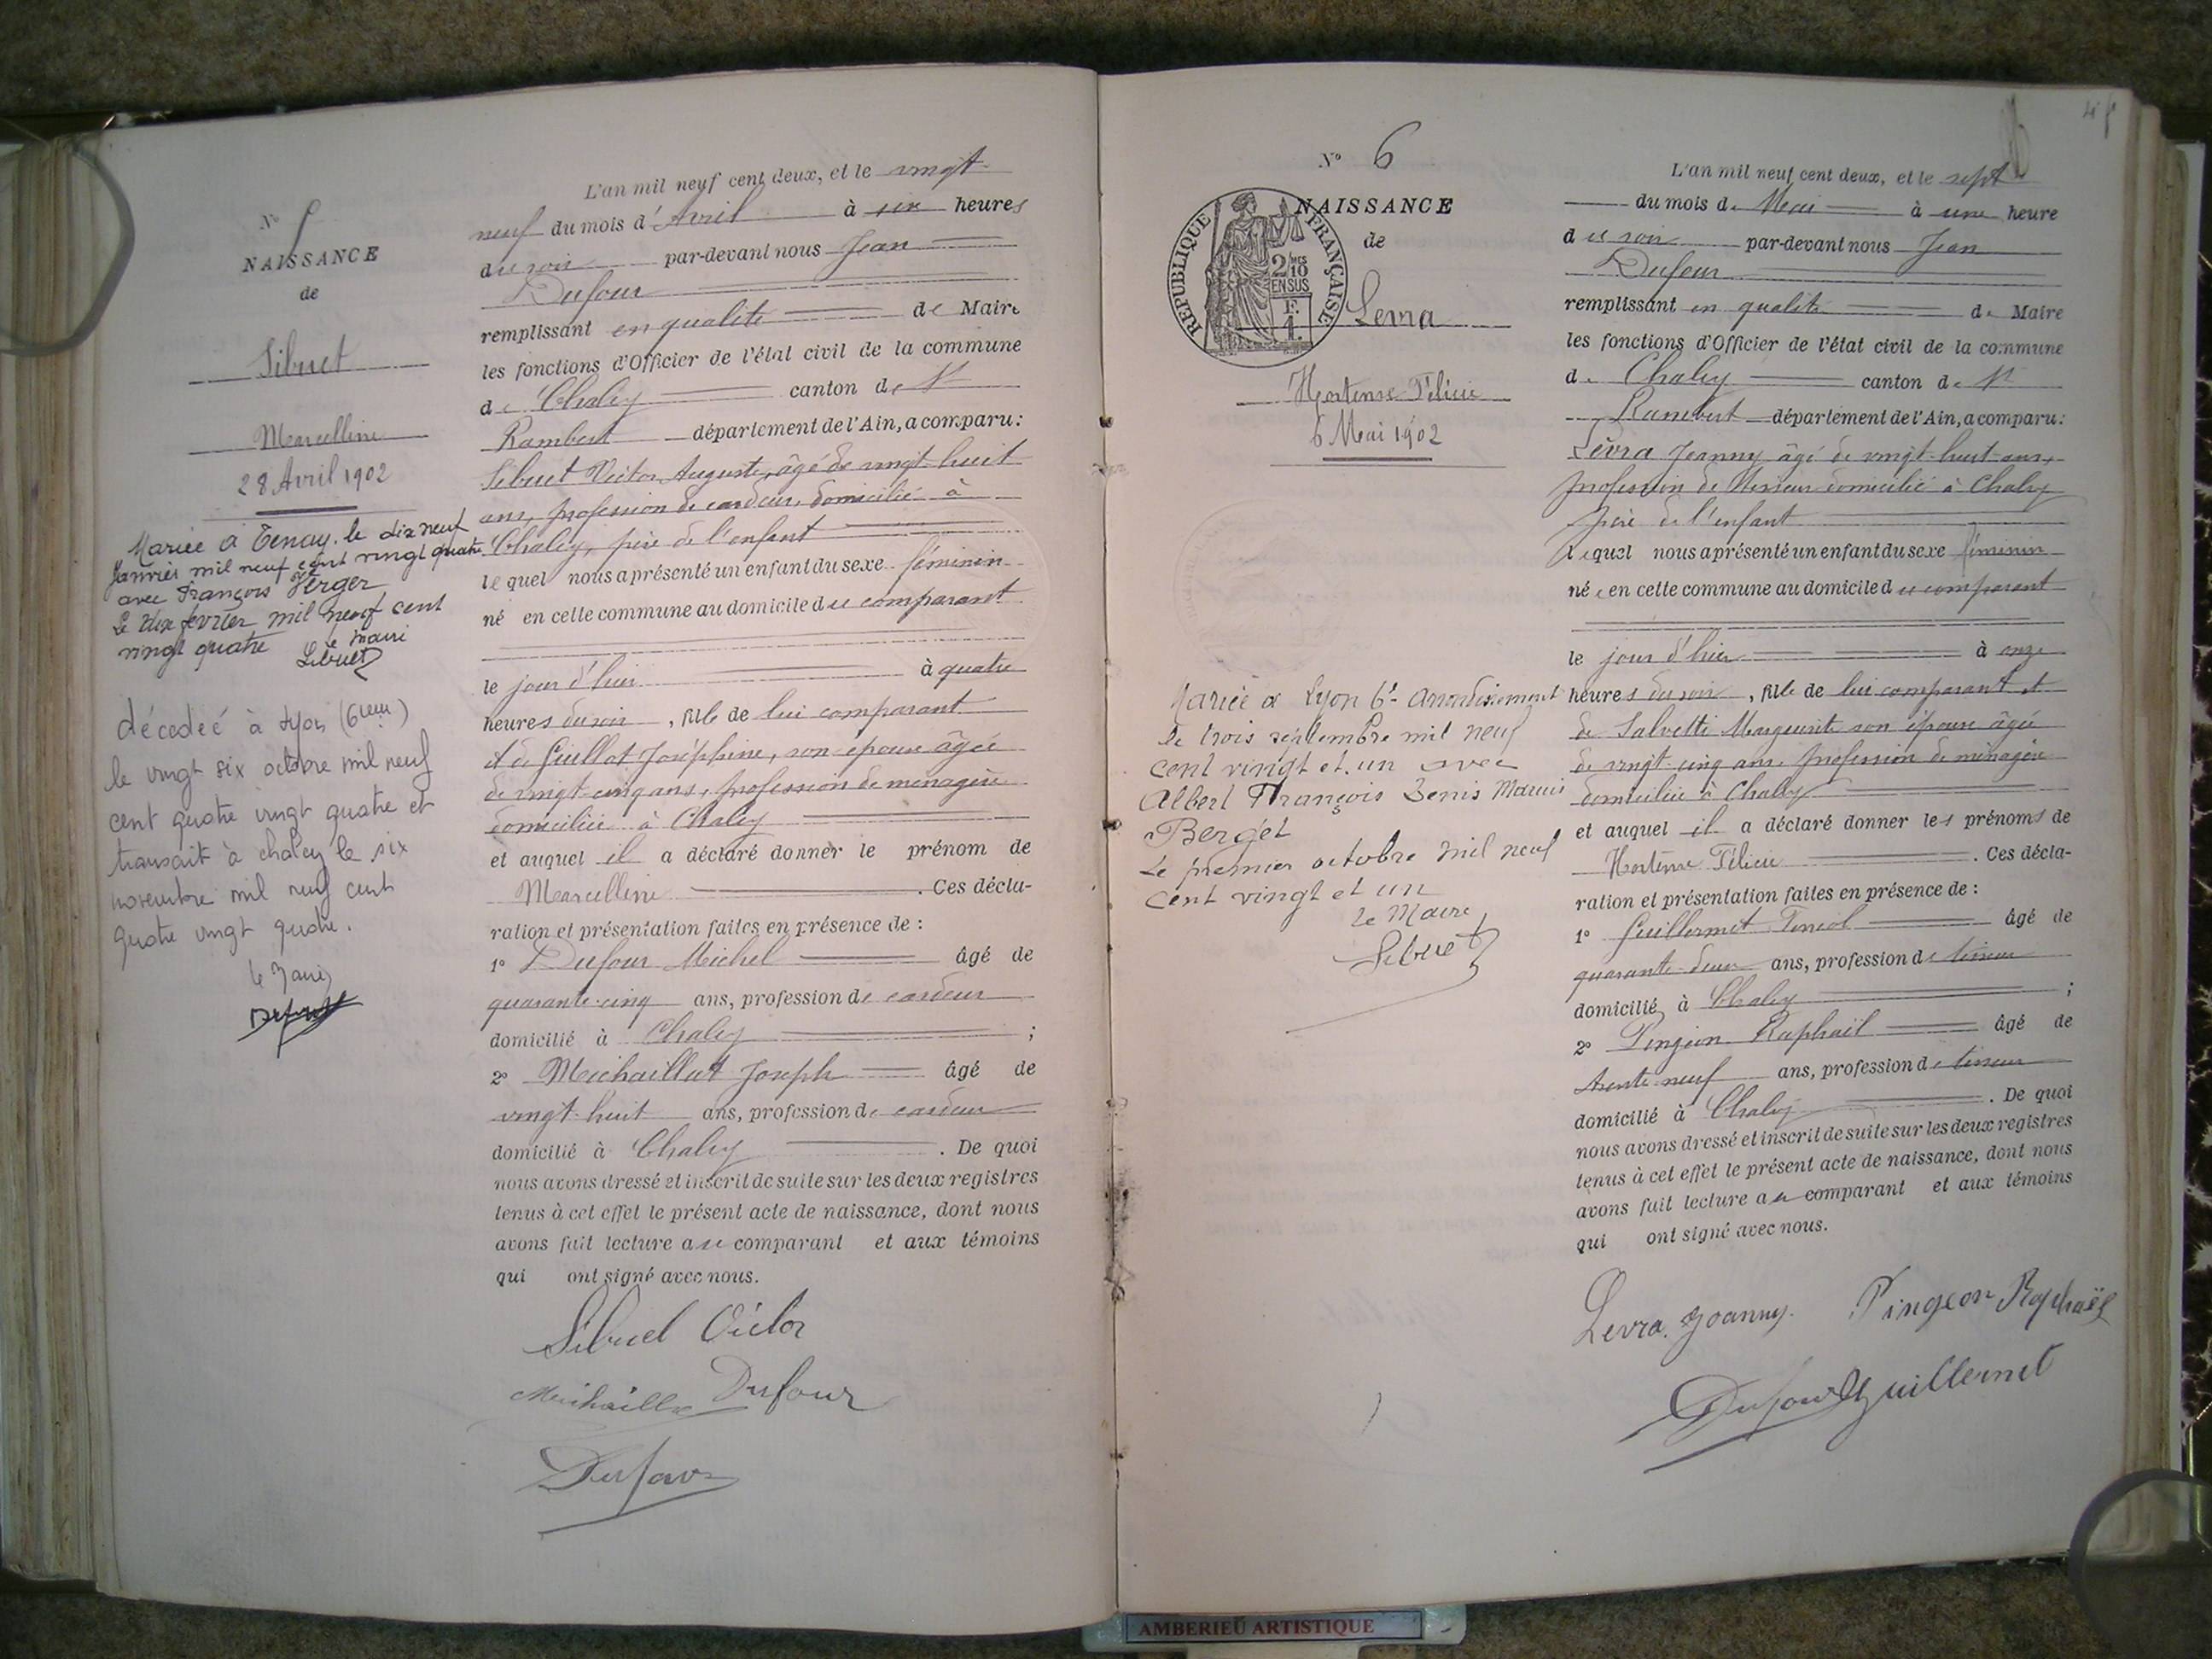 N° 5
NAISSANCE
de
Sibuet
Marcelline
28 Avril 1902
Mariée à Tenay le dix neuf
Janvier mil neuf cent vingt quatre
avec François Verger
Le dix février mil neuf cent
vingt quatre
le maire
Sibuet
décédée à Lyon (6ieme)
le vingt six octobre mil neuf
cent quatre vingt quatre et
transcrit à chaley le six
novembre mil neuf cent
quatre vingt quatre.
le Maire
L'an mil neuf cent deux, et le vingt
neuf du mois d'Avril à six heures
du soir par-devant nous Jean
Dufour
remplissant en qualité de Maire
les fonctions d'Officier de l'état civil de la commune
de Chaley canton de St
Rambert département de l'Ain, a comparu:
Sibuet Victor Auguste, âgé de vingt-huit
ans, profession de cardeur, domicilié à
Chaley, père de l'enfant
lequel nous a présenté un enfant du sexe féminin
né en cette commune au domicile du comparant
le jour d'hier à quatre
heures du soir, fille de lui comparant
et de Guillot Joséphine, son épouse âgée
de vingt-cinq ans, profession de ménagère
domiciliée à Chaley
et auquel il a déclaré donner le prénom de
Marcelline. Ces décla-
ration et présentation faites en présence de :
1° Dufour Michel âgé de
quarante-cinq ans, profession de cardeur
domicilié à Chaley ;
2° Michaillat Joseph âgé de
vingt-huit ans, profession de cardeur
domicilié à Chaley. De quoi
nous avons dressé et inscrit de suite sur les deux registres
tenus à cet effet le présent acte de naissance, dont nous
avons fait lecture au comparant et aux témoins
qui ont signé avec nous.
Sibuet Victor
Michaillat Dufour
Dufour
N° 6
NAISSANCE
de
REPUBLIQUE FRANÇAISE
2/10 MES
EN SUS
1 F.
Levra
Hortense Félicie
6 Mai 1902
Mariée à Lyon 6e arrondissement
le trois septembre mil neuf
cent vingt et un avec
Albert François Denis Marius
Berget
Le premier octobre mil neuf
cent vingt et un
le Maire
Sibuet
L'an mil neuf cent deux, et le sept
du mois de Mai à une heure
du soir par-devant nous Jean
Dufour
remplissant en qualité de Maire
les fonctions d'Officier de l'état civil de la commune
de Chaley canton de St
Rambert département de l'Ain, a comparu:
Levra Joanny âgé de vingt-huit ans,
profession de Tisseur domicilié à Chaley
père de l'enfant
lequel nous a présenté un enfant du sexe féminin
née en cette commune au domicile du comparant
le jour d'hier à onze
heures du soir, fille de lui comparant et
de Salvetti Marguerite son épouse âgée
de vingt-cinq ans, profession de ménagère
domiciliée à Chaley
et auquel il a déclaré donner les prénoms de
Hortense Félicie. Ces décla-
ration et présentation faites en présence de :
1° Guillermet âgé de
quarante-deux ans, profession de tisseur
domicilié à Chaley ;
2° Pingeon Raphaël âgé de
trente-neuf ans, profession de tisseur
domicilié à Chaley. De quoi
nous avons dressé et inscrit de suite sur les deux registres
tenus à cet effet le présent acte de naissance, dont nous
avons fait lecture au comparant et aux témoins
qui ont signé avec nous.
Levra Joanny. Pingeon Raphaël
Dufour Guillermet
AMBERIEU ARTISTIQUE